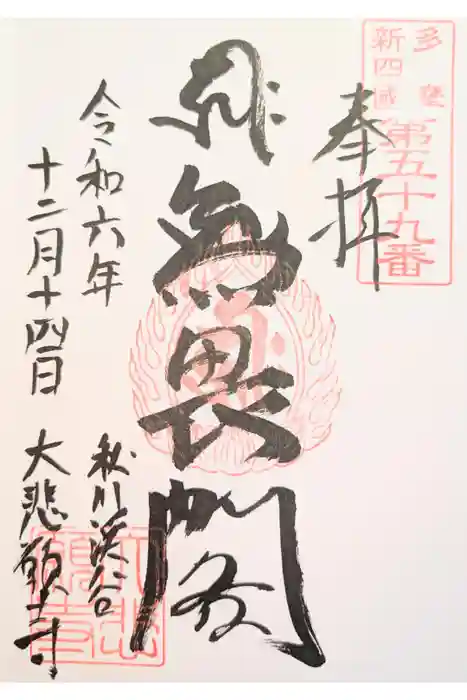 多摩
新四国
第五十九番
奉拝
無畏閣
令和六年
十二月十四日
秋川渓谷
大悲願寺